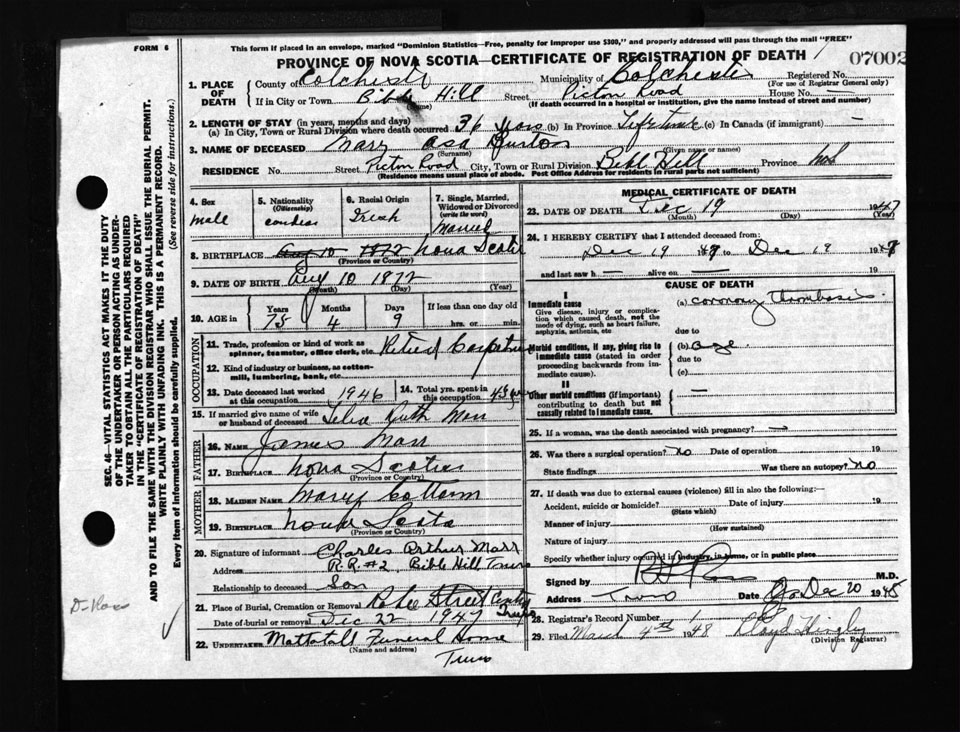 FORM 6
This form if placed in an envelope, marked "Dominion Statistics—Free, penalty for improper use $300," and properly addressed will pass through the mail "FREE"
PROVINCE OF NOVA SCOTIA—CERTIFICATE OF REGISTRATION OF DEATH
07002
1. PLACE OF DEATH
County of Colchester Municipality of Colchester Registered No.
(For use of Registrar General only)
If in City or Town Bible Hill Street Picton Road House No. —
(Name)
(If death occurred in a hospital or institution, give the name instead of street and number)
2. LENGTH OF STAY (in years, months and days)
(a) In City, Town or Rural Division where death occurred (b) In Province Lifetime (c) In Canada (if immigrant) —
3. NAME OF DECEASED Marr Asa
(Surname) (Given name or names)
RESIDENCE No. Street Picton Road City, Town or Rural Division Bible Hill Province
(Residence means usual place of abode. Post Office Address for residents in rural parts not sufficient)
4. Sex
male
5. Nationality
(Citizenship)
6. Racial Origin
Irish
7. Single, Married, Widowed or Divorced
(write the word)
Married
8. BIRTHPLACE Aug 10 1872 Nova Scotia
(Province or Country)
9. DATE OF BIRTH Aug 10 1872
(Month) (Day) (Year)
10. AGE in
Years Months Days If less than one day old
75 4 9 hrs. or min.
OCCUPATION
11. Trade, profession or kind of work as spinner, teamster, office clerk, etc. Retired Carpenter
12. Kind of industry or business, as cotton-mill, lumbering, bank, etc.
13. Date deceased last worked at this occupation 1946
14. Total yrs. spent in this occupation
15. If married give name of wife or husband of deceased Ruth Marr
FATHER
16. NAME James Marr
17. BIRTHPLACE Nova Scotia
(Province or Country)
MOTHER
18. MAIDEN NAME Mary
19. BIRTHPLACE Nova Scotia
(Province or Country)
20. Signature of informant Charles Arthur Marr
Address R.R. #2, Bible Hill Truro
Relationship to deceased Son
21. Place of Burial, Cremation or Removal Robie Street Truro
Date of burial or removal Dec 22 1947
22. UNDERTAKER Mattatall Funeral Home
(Name and address)
Truro
MEDICAL CERTIFICATE OF DEATH
23. DATE OF DEATH Dec 19 1947
(Month) (Day) (Year)
24. I HEREBY CERTIFY that I attended deceased from:
Dec 19 to Dec 19
and last saw h— alive on — 19
CAUSE OF DEATH
I
Immediate cause
Give disease, injury or complication which caused death, not the mode of dying, such as heart failure, asphyxia, asthenia, etc
(a) coronary thrombosis
due to
Morbid conditions, if any, giving rise to immediate cause (stated in order proceeding backwards from immediate cause).
(b) age
due to
(c)
II
Other morbid conditions (if important) contributing to death but not causally related to immediate cause.
—
25. If a woman, was the death associated with pregnancy? —
26. Was there a surgical operation? no Date of operation 19
State findings Was there an autopsy? no
27. If death was due to external causes (violence) fill in also the following:—
Accident, suicide or homicide? Date of injury 19
(State which)
Manner of injury
(How sustained)
Nature of injury
Specify whether injury occurred in industry, in home, or in public place
Signed by M.D.
Address Truro Date Dec 20
28. Registrar's Record Number 1
29. Filed March 4th 1948 Lloyd
(Division Registrar)
SEC. 46—VITAL STATISTICS ACT MAKES IT THE DUTY OF THE UNDERTAKER OR PERSON ACTING AS UNDERTAKER TO OBTAIN ALL THE PARTICULARS REQUIRED IN THE "CERTIFICATE OF REGISTRATION OF DEATH" AND TO FILE THE SAME WITH THE DIVISION REGISTRAR WHO SHALL ISSUE THE BURIAL PERMIT.
WRITE PLAINLY WITH UNFADING INK. THIS IS A PERMANENT RECORD.
Every item of information should be carefully supplied. (See reverse side for instructions.)
Dr Ross